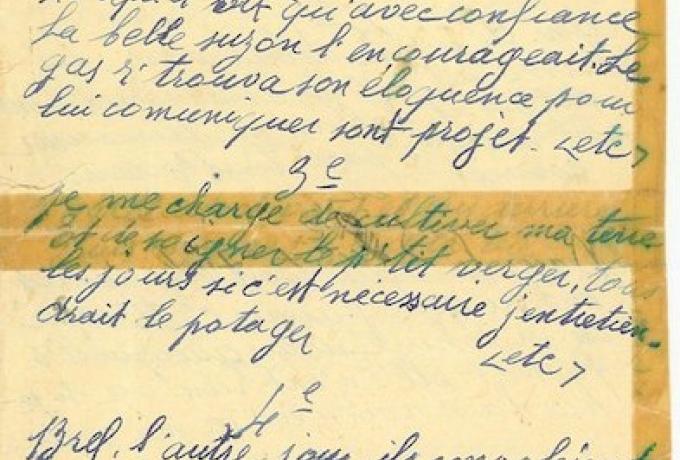 vit qu'avec confiance
La belle suzon l'encourageait. Le
gas r'trouva son éloquence pour
lui comuniquer sont projet. <etc>
3e
je me charge de cultiver ma terre
et de soigner le p'tit verger, tous
les jours si c'est nécessaire j'entretien-
drait le potager
<etc>
4e
Bref, l'autre jour ils